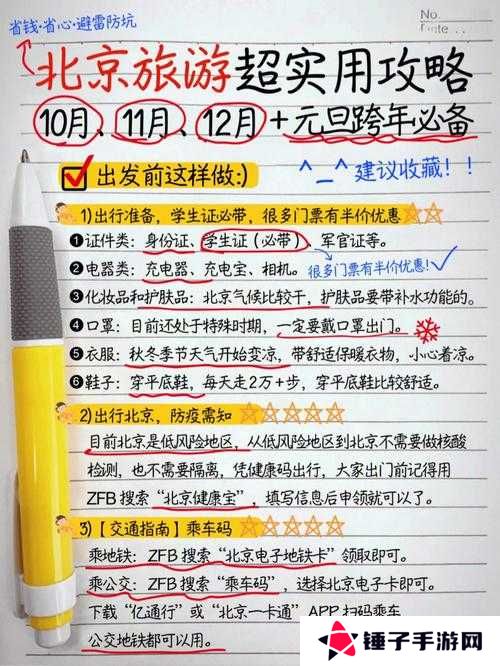 省钱·省心·避雷防坑
No.
北京旅游超实用攻略
10月、11月、12月+元旦跨年必备
出发前这样做:) ^_^ 建议收藏！！
1)出行准备，学生证必带，很多门票有半价优惠
❶证件类：身份证、学生证（必带）、军官证等。
❷电器类：充电器、充电宝、相机。 很多门票有半价优惠!
❸化妆品和护肤品：北京气候比较干，护肤品要带补水功能的。
❹口罩：目前还处于特殊时期，一定要戴口罩出门。
❺衣服：秋冬季节天气开始变凉，带舒适保暖衣物，小心着凉。
❻鞋子：穿平底鞋，每天走2万+步，穿平底鞋比较舒适。
2)出行北京，防疫需知
目前北京是低风险地区，从低风险地区到北京不需要做核酸
检测，也不需要隔离，凭健康码出行，大家出门前记得用
ZFB搜索“北京健康宝”，填写信息后申领就可以了。
3)【交通指南】乘车码
乘地铁：ZFB搜索“北京电子地铁卡”领取即可。
乘公交：ZFB搜索“乘车码”，选择北京电子卡即可。
下载“亿通行”或“北京一卡通”APP扫码乘车
公交地铁都可以用。
锤子手游网